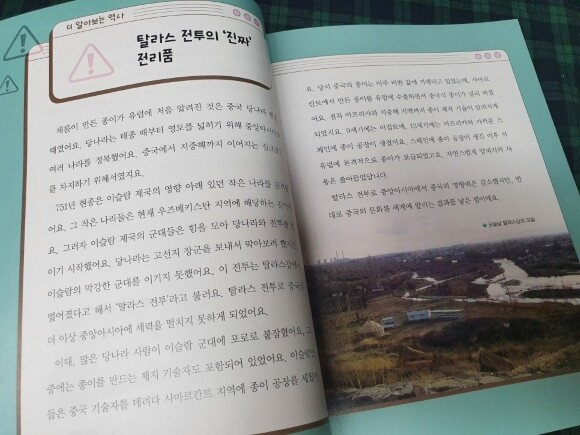 더 알아보는 역사
탈라스 전투의 '진짜'
전리품
채륜이 만든 종이가 유럽에 처음 알려진 것은 중국 당나라
때였어요. 당나라는 태종 때부터 영토를 넓히기 위해 중앙아시아의
여러 나라를 정복했어요. 중국에서 지중해까지 이어지는
를 차지하기 위해서였지요.
751년 현종은 이슬람 제국의 영향 아래 있던 작은 나라를
어요. 그 작은 나라들은 현재 우즈베키스탄 지역에 해당하는
요. 그러자 이슬람 제국의 군대들은 힘을 모아 당나라와 전투를
이기 시작했어요. 당나라는 고선지 장군을 보내서 막아보려 했지만
이슬람의 막강한 군대를 이기지 못했어요. 이 전투는 탈라스강에서
벌어졌다고 해서 '탈라스 전투'라고 불러요. 탈라스 전투로 중국은
더 이상 중앙아시아에 세력을 펼치지 못하게 되었어요.
이때, 많은 당나라 사람이 이슬람 군대에 포로로 붙잡혔어요. 그
중에는 종이를 만드는 제지 기술자도 포함되어 있었어요. 이슬람인
들은 중국 기술자를 데려다 사마르칸트 지역에 종이 공장을
요. 당시 중국의 종이는 아주 비싼 값에 거래되고 있었는데, 사마르
칸트에서 만든 종이를 유럽에 수출하면서 중국식 종이가 널리 퍼졌
어요. 전차 아프리카와 지중해 지역까지 종이 제작 기술이 알려지게
되었지요. 9세기에는 이집트에, 12세기에는 아프리카와 가까운 스
페인에 종이 공장이 생겼어요. 스페인에 종이 공장이 생긴 이후 서
유럽에 본격적으로 종이가 보급되었고요. 자연스럽게 양피지의 사
용은 줄어들었답니다.
탈라스 전투로 중앙아시아에서 중국의 영향력은 감소했지만, 반
대로 중국의 문화를 세계에 알리는 결과를 낳은 셈이에요.
오늘날 탈라스강의 모습